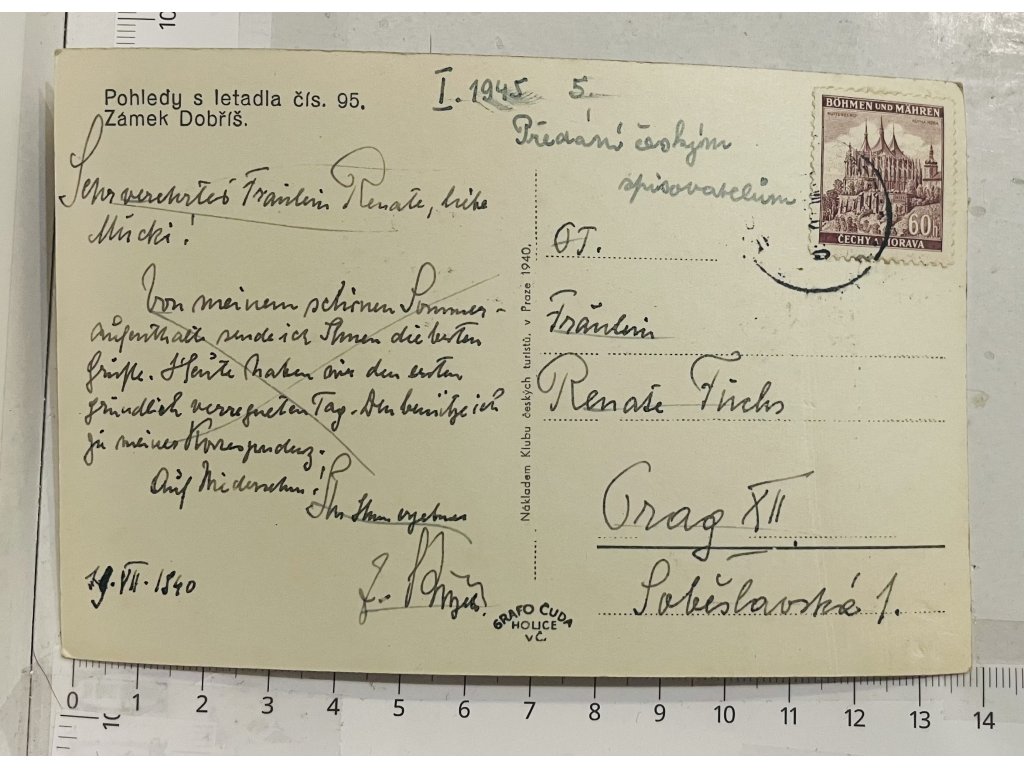 Pohledy s letadla čís. 95.
Zámek Dobříš.
I. 1945 5.
Předání českým
spisovatelům
BÖHMEN UND MÄHREN
60h
ČECHY A MORAVA
Sehr verehrtes Fräulein Renate, liebe
Mucki!
Von meinem schönen Sommer-
aufenthalt sende ich Ihnen die besten
Grüße. Heute haben wir den ersten
gründlich verregneten Tag. Den benütze ich
zu meiner Korrespondenz.
Auf Wiedersehen!
Ihr Ihnen ergebener
19. VII. 1940
Nákladem Klubu českých turistů, v Praze 1940.
GRAFO ČUDA
HOLICE
v Č.
Fräulein
Renate Fuchs
Prag XII.
Soběslavská 1.
0 1 2 3 4 5 6 7 8 9 10 11 12 13 14
10